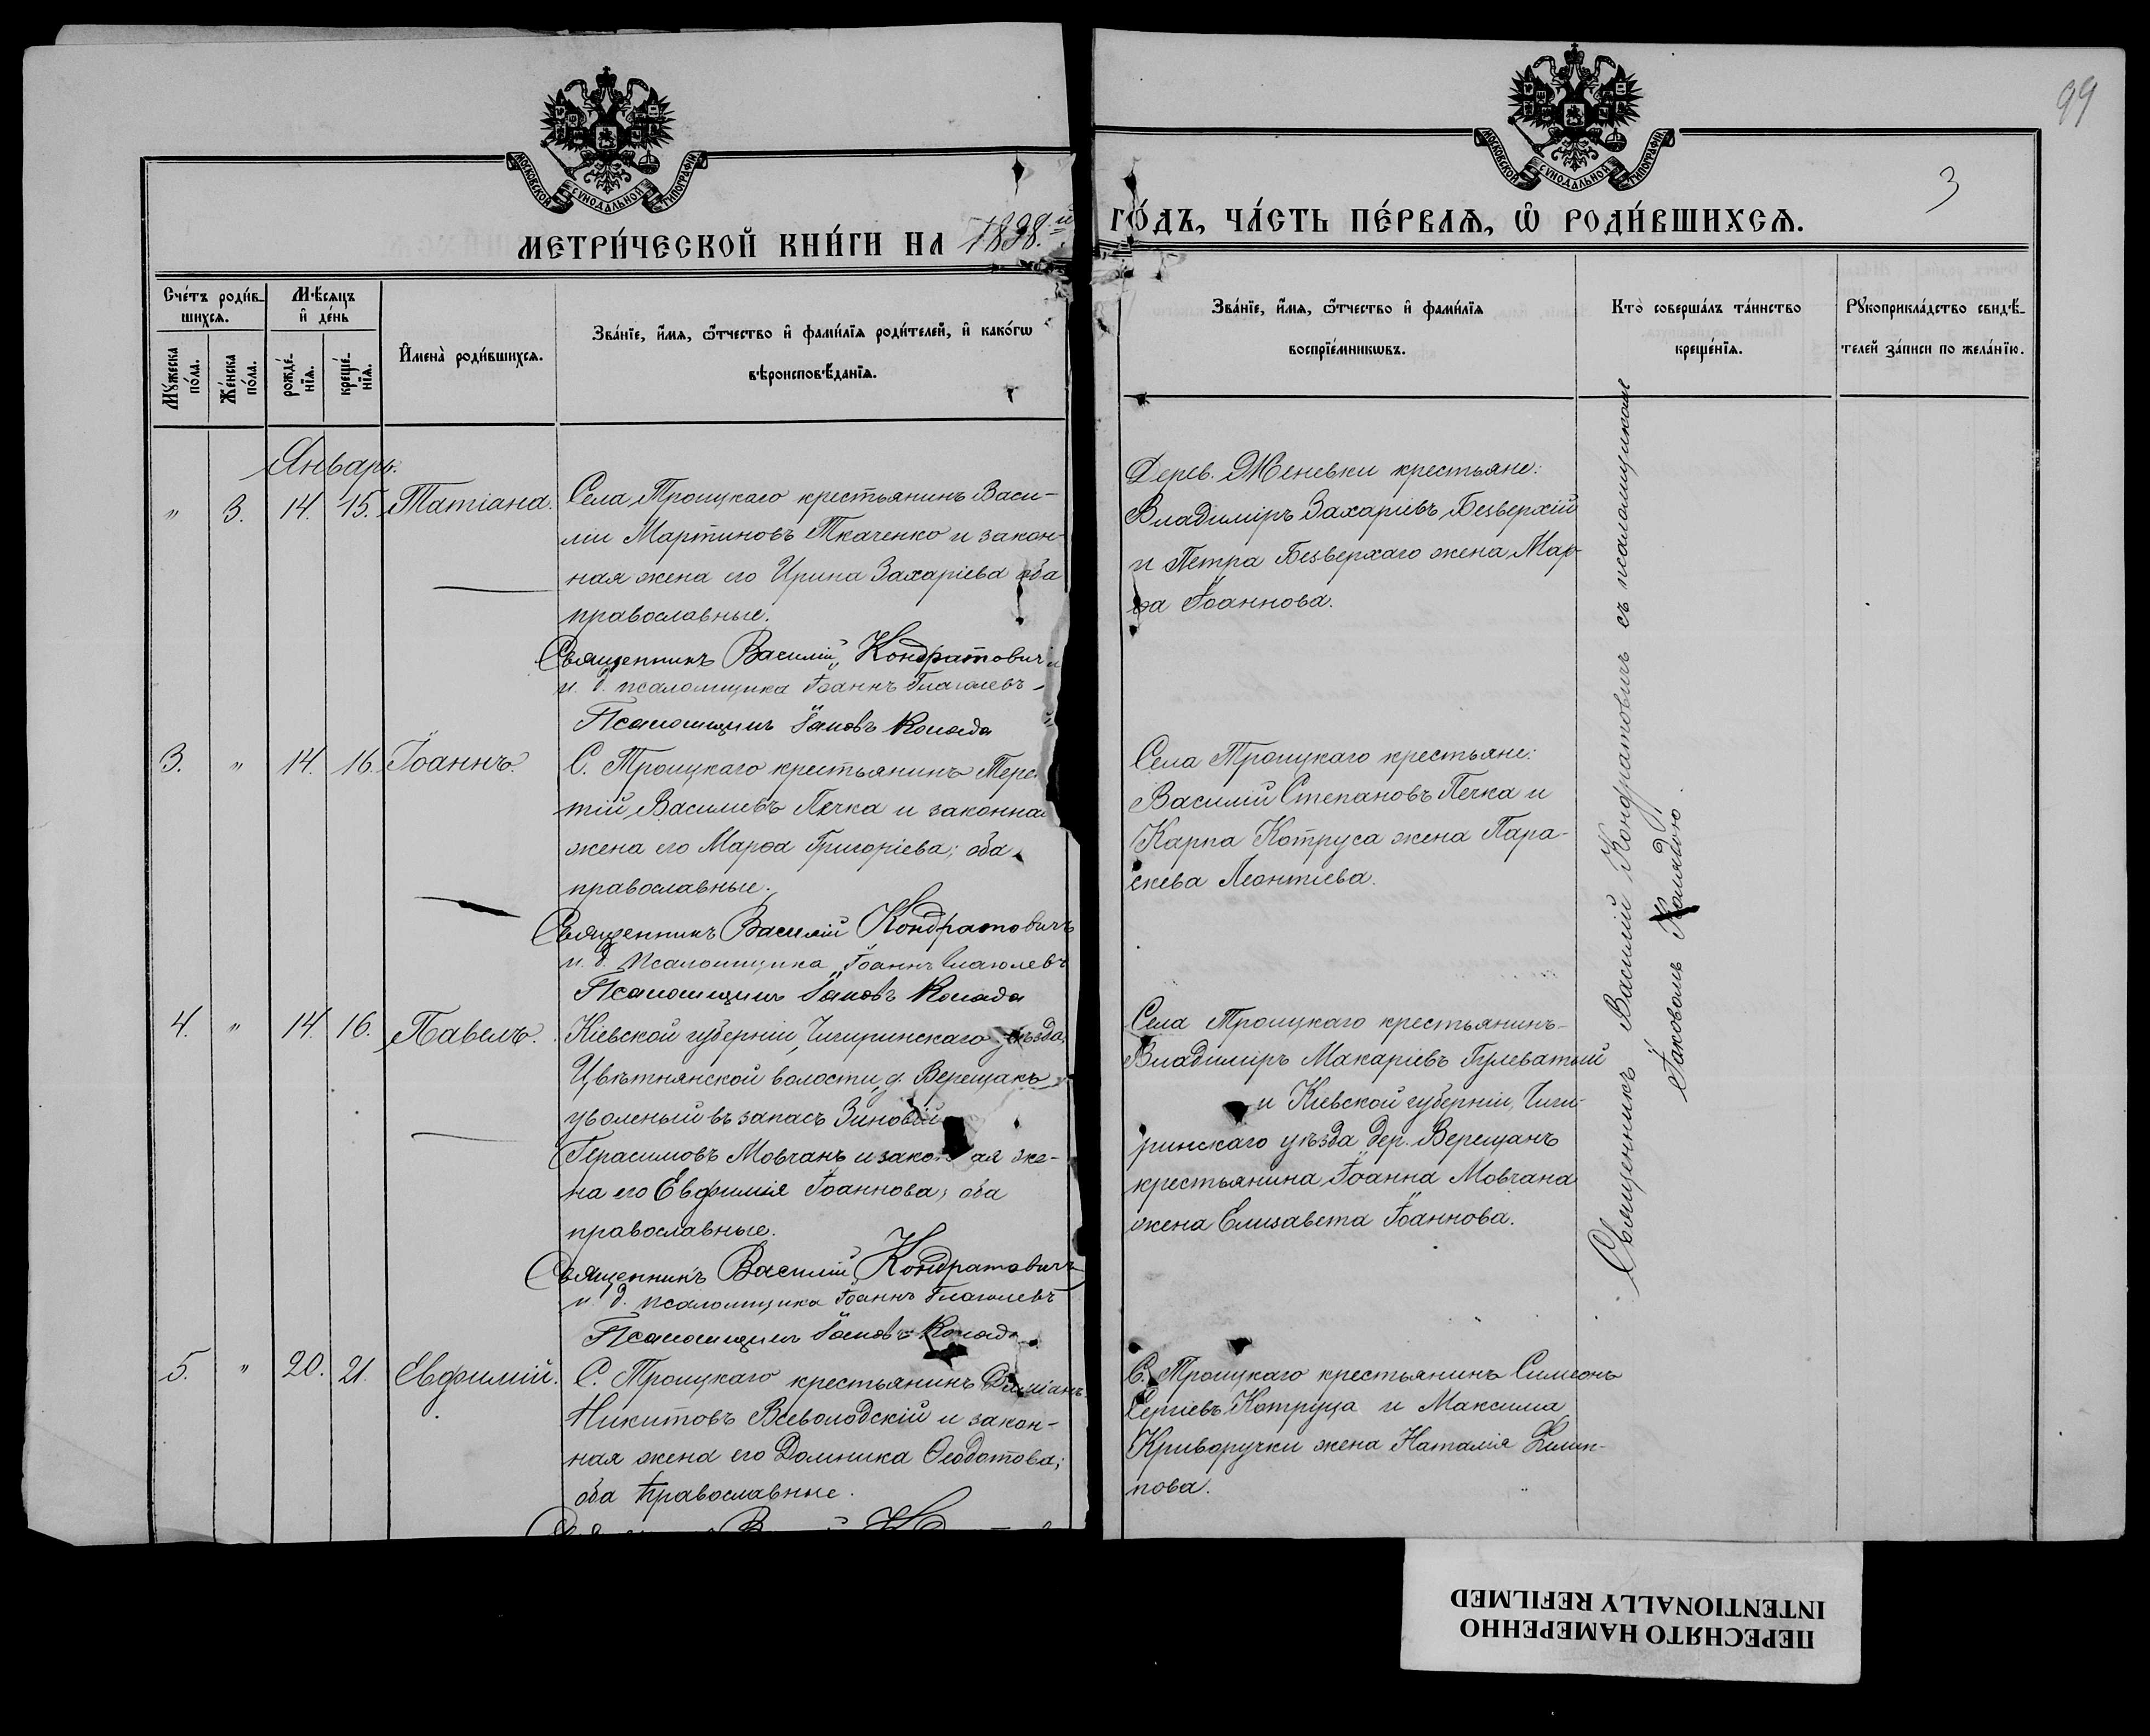 99
3
МОСКОВСКОЙ СУНОДАЛЬНОЙ ТИПОГРАФІИ
МОСКОВСКОЙ СУНОДАЛЬНОЙ ТИПОГРАФІИ
МЕТРИ́ЧЕСКОЙ КНИ́ГИ НА 1898.й ГО́ДЪ, ЧА́СТЬ ПЕ́РВАѦ, Ѽ РОДИ́ВШИХСѦ.
Сче́тъ роди́в-
шихсѧ.
Мꙋ́жеска
по́ла.
Же́нска
по́ла.
Мѣ́сѧцъ
и҆ де́нь
рожде́-
нїѧ.
креще́-
нїѧ.
И҆мена̀ роди́вшихсѧ.
Зва́нїе, и҆́мѧ, ѻ҆́тчество и҆ фами́лїѧ роди́телей, и҆ како́гѡ
вѣроисповѣ́данїѧ.
Зва́нїе, и҆́мѧ, ѻ҆́тчество и҆ фами́лїѧ
воспрїе́мникѡвъ.
Кто̀ соверша́лъ та́инство
креще́нїѧ.
Рꙋкоприкла́дство свидѣ́-
телей за́писи по жела́нїю.
Январь.
" 3. 14. 15. Татіана.
Села Троицкаго крестьянинъ Васи-
лій Мартиновъ Ткаченко и закон-
ная жена его Ирина Захаріева оба
православные.
Священникъ Василій Кондратовичъ
и. д. псаломщика Іоаннъ Глаголевъ
Псаломщикъ Іаковъ Коляда
Дерев. Женевки крестьяне:
Владиміръ Захаріевъ Безверхій
и Петра Безверхаго жена Мар-
ѳа Іоаннова.
3. " 14. 16. Іоаннъ.
С. Троицкаго крестьянинъ Терен
тій Василіевъ Печка и законная
жена его Марѳа Григоріева; оба
православные.
Священникъ Василій Кондратовичъ
и. д. псаломщика Іоаннъ Глаголевъ
Псаломщикъ Іаковъ Коляда
Села Троицкаго крестьяне:
Василій Степановъ Печка и
Карпа Котруса жена Пара-
скева Леонтіева.
4. " 14. 16. Павелъ.
Кіевской губерніи, Чигиринскаго уѣзда,
Цвѣтнянской волости, д. Верещакъ
уволеный въ запасъ Зиновій
Герасимовъ Мовчанъ и законная же-
на его Евфимія Іоаннова; оба
православные.
Священникъ Василій Кондратовичъ
и. д. псаломщика Іоаннъ Глаголевъ
Псаломщикъ Іаковъ Коляда
Села Троицкаго крестьянинъ
Владиміръ Макаріевъ Гулеватый
и Кіевской губерніи, Чиги-
ринскаго уѣзда дер. Верещакъ
крестьянина Іоанна Мовчана
жена Елизавета Іоаннова.
5. " 20. 21. Евфимій.
С. Троицкаго крестьянинъ Даміанъ
Никитовъ Всеволодскій и закон-
ная жена его Домника Ѳеодотова;
оба православные.
С. Троицкаго крестьянинъ Симеонъ
Сергіевъ Котруца и Максима
Криворучки жена Наталія Филип-
пова.
Священникъ Василій Кондратовичъ съ псаломщикомъ
Іаковомъ Колядою.
ПЕРЕСНЯТО НАМЕРЕННО
INTENTIONALLY REFILMED